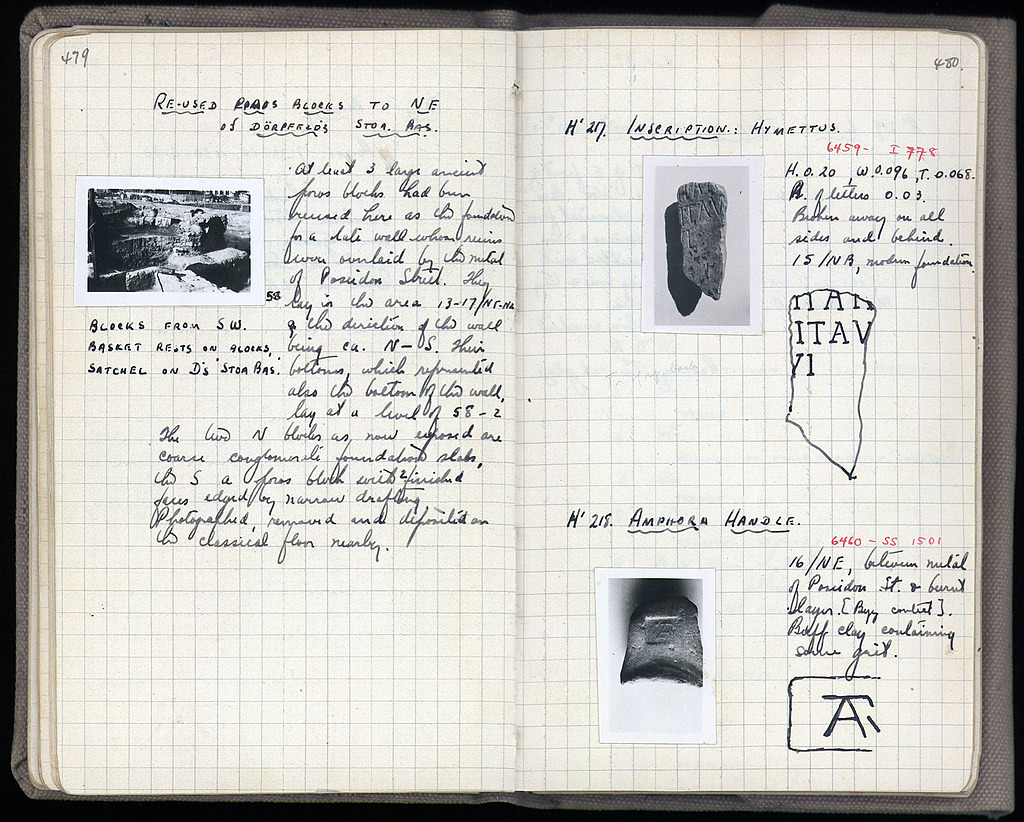 479
RE-USED POROS BLOCKS TO NE
of DÖRPFELD'S STOA BAS.
At least 3 large ancient
poros blocks had been
reused here as the foundation
for a late wall whose ruins
were overlaid by the metal
of Poseidon Street. They
58 lay in the area 13-17/
& the direction of the wall
being ca. N-S. Their
bottoms, which represented
also the bottom of the wall,
lay at a level of 58-2
The two N blocks as now exposed are
coarse conglomerate foundation slabs,
the S a poros block with 2 finished
faces edged by narrow drafting
Photographed, removed and deposited on
the classical floor nearby.
BLOCKS FROM SW.
BASKET RESTS ON BLOCKS,
SATCHEL ON D'S STOA BAS.
480
H' 217. INSCRIPTION: HYMETTUS.
6459- I 778
H. 0.20, W. 0.096, T. 0.068.
H. of letters 0.03.
Broken away on all
sides and behind.
15/NB, modern foundation.
ΠΑΠ
ΙΤΑV
ΥΙ
H' 218. AMPHORA HANDLE.
6460 - SS 1501
16/NE, between metal
of Poseidon St. & burnt
layer. [Byz context].
Buff clay containing
some grit.